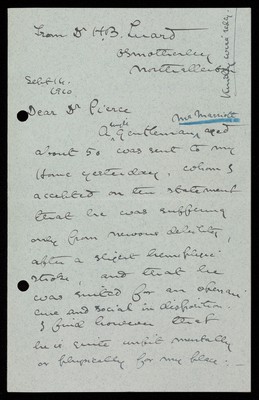 From Dr H.B. Luard
Osmotherley
Northallerton
Kindly wire reply
Sept 14.
1910
Dear Dr Pierce
Mr Marriott
A gentleman, aged
about 50 was sent to my
Home yesterday, whom I
accepted on the statement
that he was suffering
only from nervous debility,
after a slight hemiplegic
stroke, and that he
was suited for an open air
cure and social in disposition.
I find however that
he is quite unfit mentally
or physically for my place. -